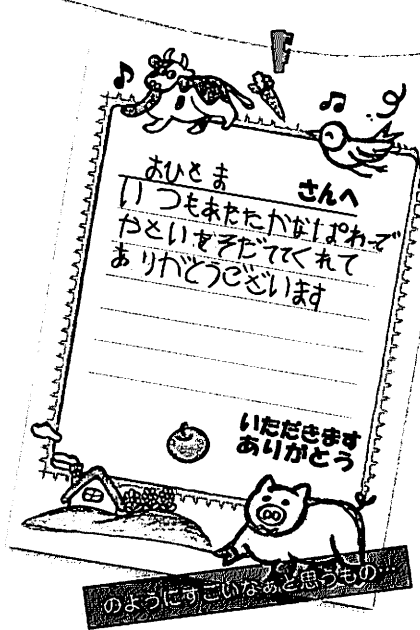 おひさま さんへ
いつもあたたかなぱわーで
やさいをそだててくれて
ありがとうございます
いただきます
ありがとう
のようにすごいなぁと思うもの…